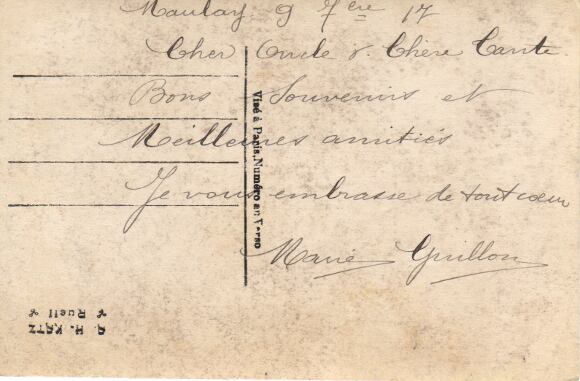 Maulay 9 7bre 17
Cher Oncle & Chère Tante
Bons Souvenirs et
Meilleures amitiés
Je vous embrasse de tout cœur
Marie Guillon
Visé à Paris. Numéro au Verso
G. H. KATZ
Rueil